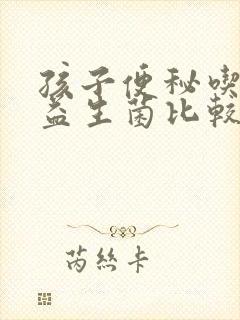 孩子便秘喫
益生菌比較
芮絲卡